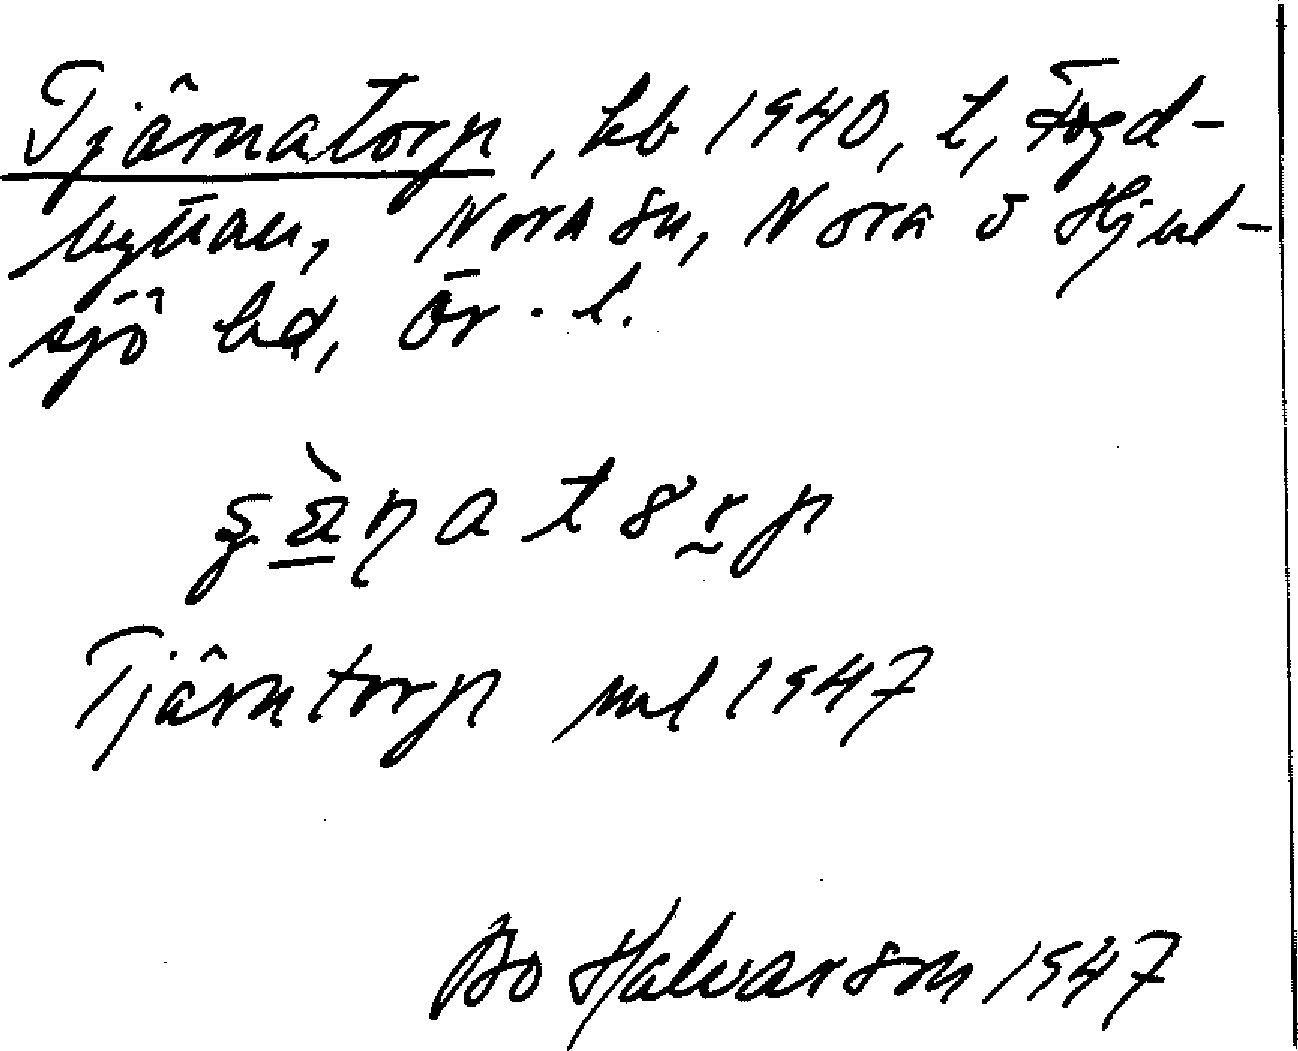 Tjärnatorp, kb 1940, t, Fogd-
hyttan, Nora sn, Nora o Hjul-
sjö bd, Ör. l.
Tjärntorp ml 1947
Bo Halvarson 1947